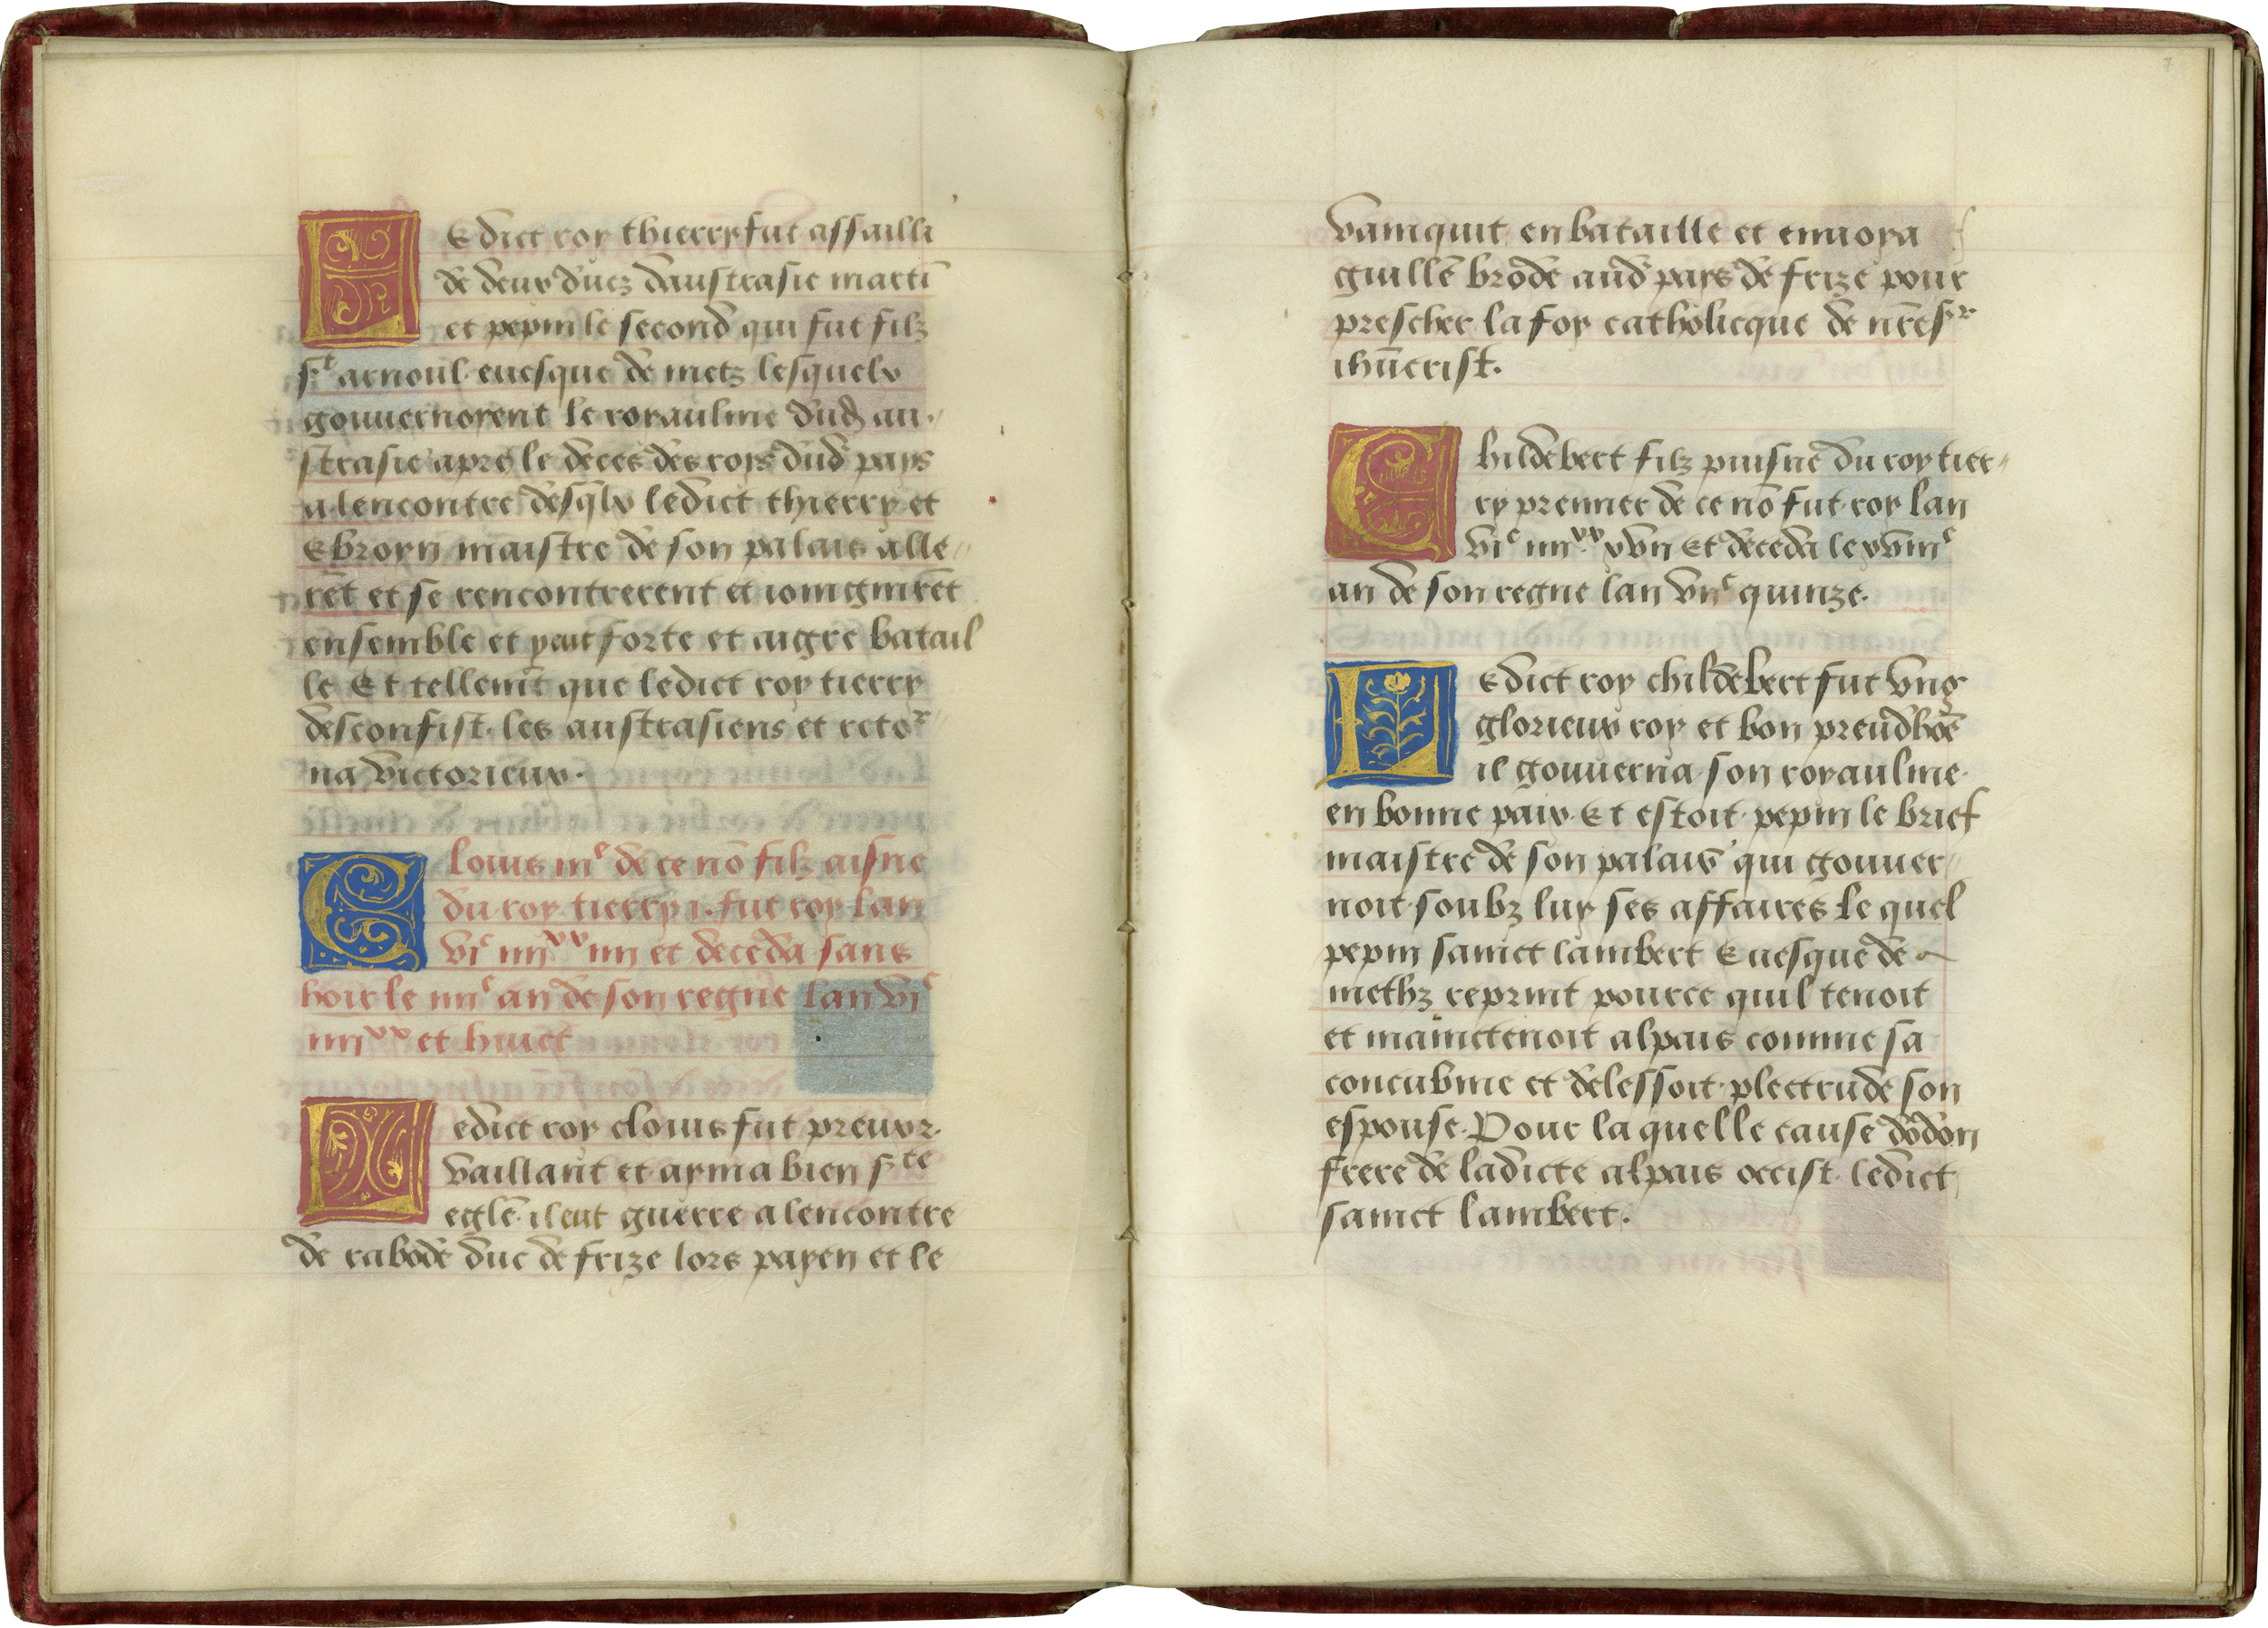 LEdict roy thierry fut assailli
de deux ducz daustrasie martī
et pepin le second qui fut filz
sᵗ arnoul euesque de metz lesquelx
gouuernoyent le royaulme dud au
strasie apres le deces des roys dud pays
alencontre desq̄lx ledict thierry et
Ebroyn maistre de son palais alle
rēt et se rencontrerent et ioingnirēt
ensemble et y eut forte et aigre batail
le Et tellemēt que ledict roy tierry
desconfist les austrasiens et retoʳ
na victorieux.
Clouis iiiᵉ de ce nō filz aisne
du roy tierry i. fut roy lan
viᶜ iiiiˣˣ iiii et deceda sans
hoir le iiiiᵉ an de son regne lan viᶜ
iiiiˣˣ et huict
Ledict roy clouis fut preux.
vaillant et ayma bien sᵗᵉ
eglē il eut guerre alencontre
de rabode duc de frize lors payen et le
vainquit en bataille et enuoya
guillē brode aud pays de frize pour
prescher la foy catholicque de nrēsʳ
ihūcrist.
Childebert filz puisne du roy tier
ry premier de ce nō fut roy lan
viᶜ iiiiˣˣ xvii Et deceda le xviiiᵉ
an de son regne lan viiᶜ quinze.
LEdict roy childebert fut vng
glorieux roy et bon preudhōe
il gouuerna son royaulme
en bonne paix Et estoit pepin le brief
maistre de son palais qui gouuer
noit soubz luy ses affaires Le quel
pepin sainct lambert Euesque de
methz reprint pource quil tenoit
et mainctenoit alpais comme sa
concubine et delessoit plectrude son
espouse. Pour laquelle cause dodon
frere de ladicte alpais occist ledict
sainct lambert.
7